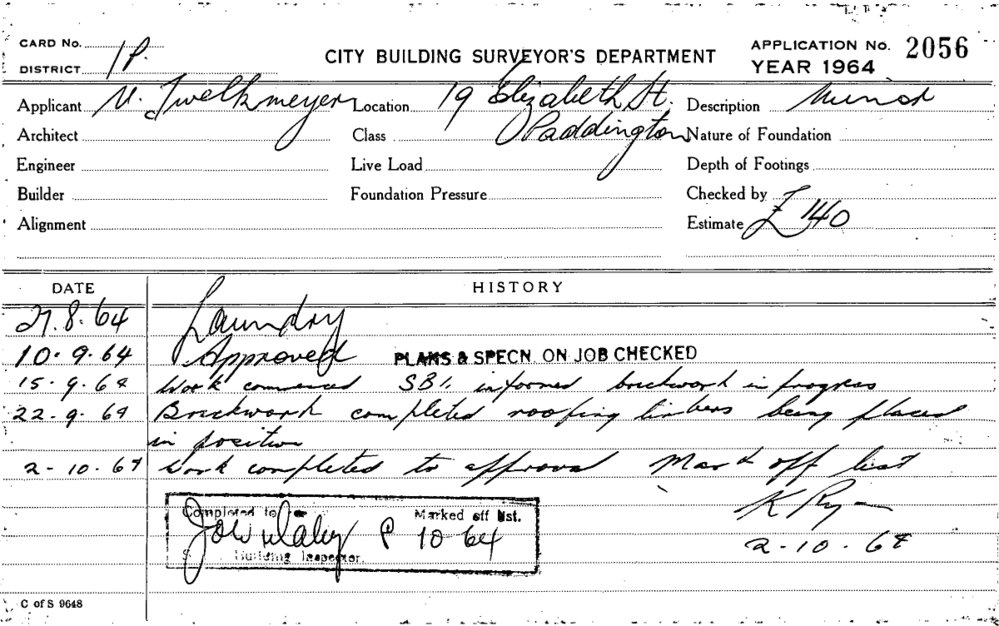 CARD No. 1P. CITY BUILDING SURVEYOR'S DEPARTMENT APPLICATION No. 2056
DISTRICT YEAR 1964
Applicant V. Twelkmeyer Location 19 Elizabeth St. Description Minor
Architect Class Paddington Nature of Foundation
Engineer Live Load Depth of Footings
Builder Foundation Pressure Checked by
Alignment Estimate £140
DATE HISTORY
27.8.64 Laundry
10.9.64 Approved PLANS & SPECN. ON JOB CHECKED
15.9.64 Work commenced SB1. informed brickwork in progress
22.9.64 Brickwork completed roofing timbers being placed
in position
2-10.64 Work completed to approval Mark off list
K Ryan
2-10.64
Completed to Marked off list.
10 64
Building Inspector.
C of S 9648